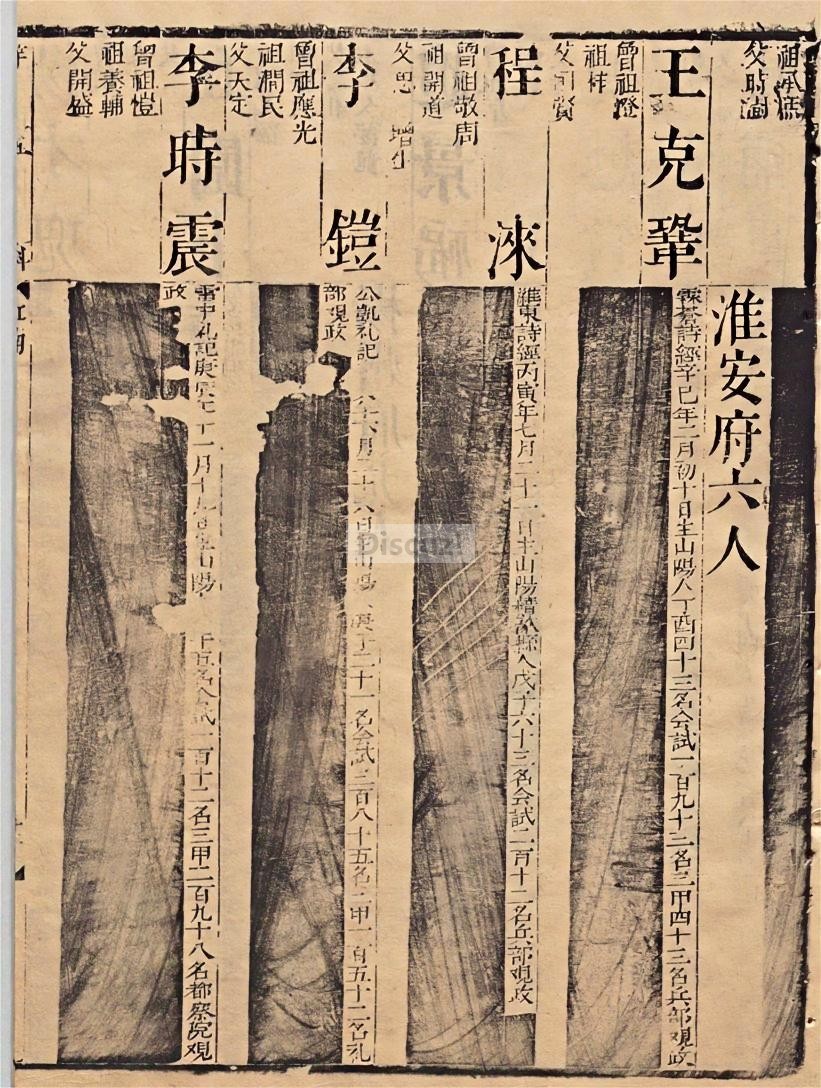 祖承庶
父時澍
淮安府六人
王克鞏
曾祖燈
祖梓
父可賛
霖蒼詩經辛巳年二月初十日生山陽人丁酉四十三名會試一百九十二名三甲四十三名兵部觀政
程淶
曾祖敬周
祖開道
父思 增生
淮東詩經丙寅年七月二十一日生山陽籍歙縣人戊子六十三名會試二百十二名兵部觀政
李鎧
曾祖應光
祖澗民
父天定
公凱禮記 六月二十六日生山陽人 二十一名會試三百八十五名 甲一百五十二名禮
部觀政
李時震
曾祖愷
祖養輔
父開盛
雷中禮記庚 十一月十九日生山陽 十五名會試一百十二名三甲二百九十八名都察院觀
政
五
科
江南